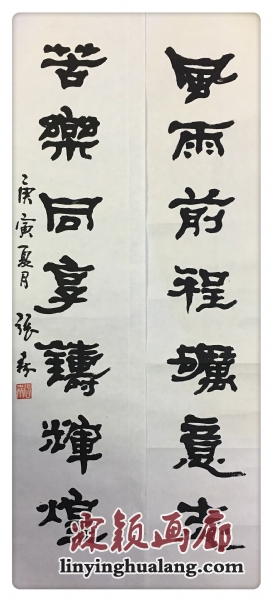 風雨前程礪意志
苦樂同享鑄輝煌
庚寅夏月 張森
霖颖画廊
linyinghualang.com